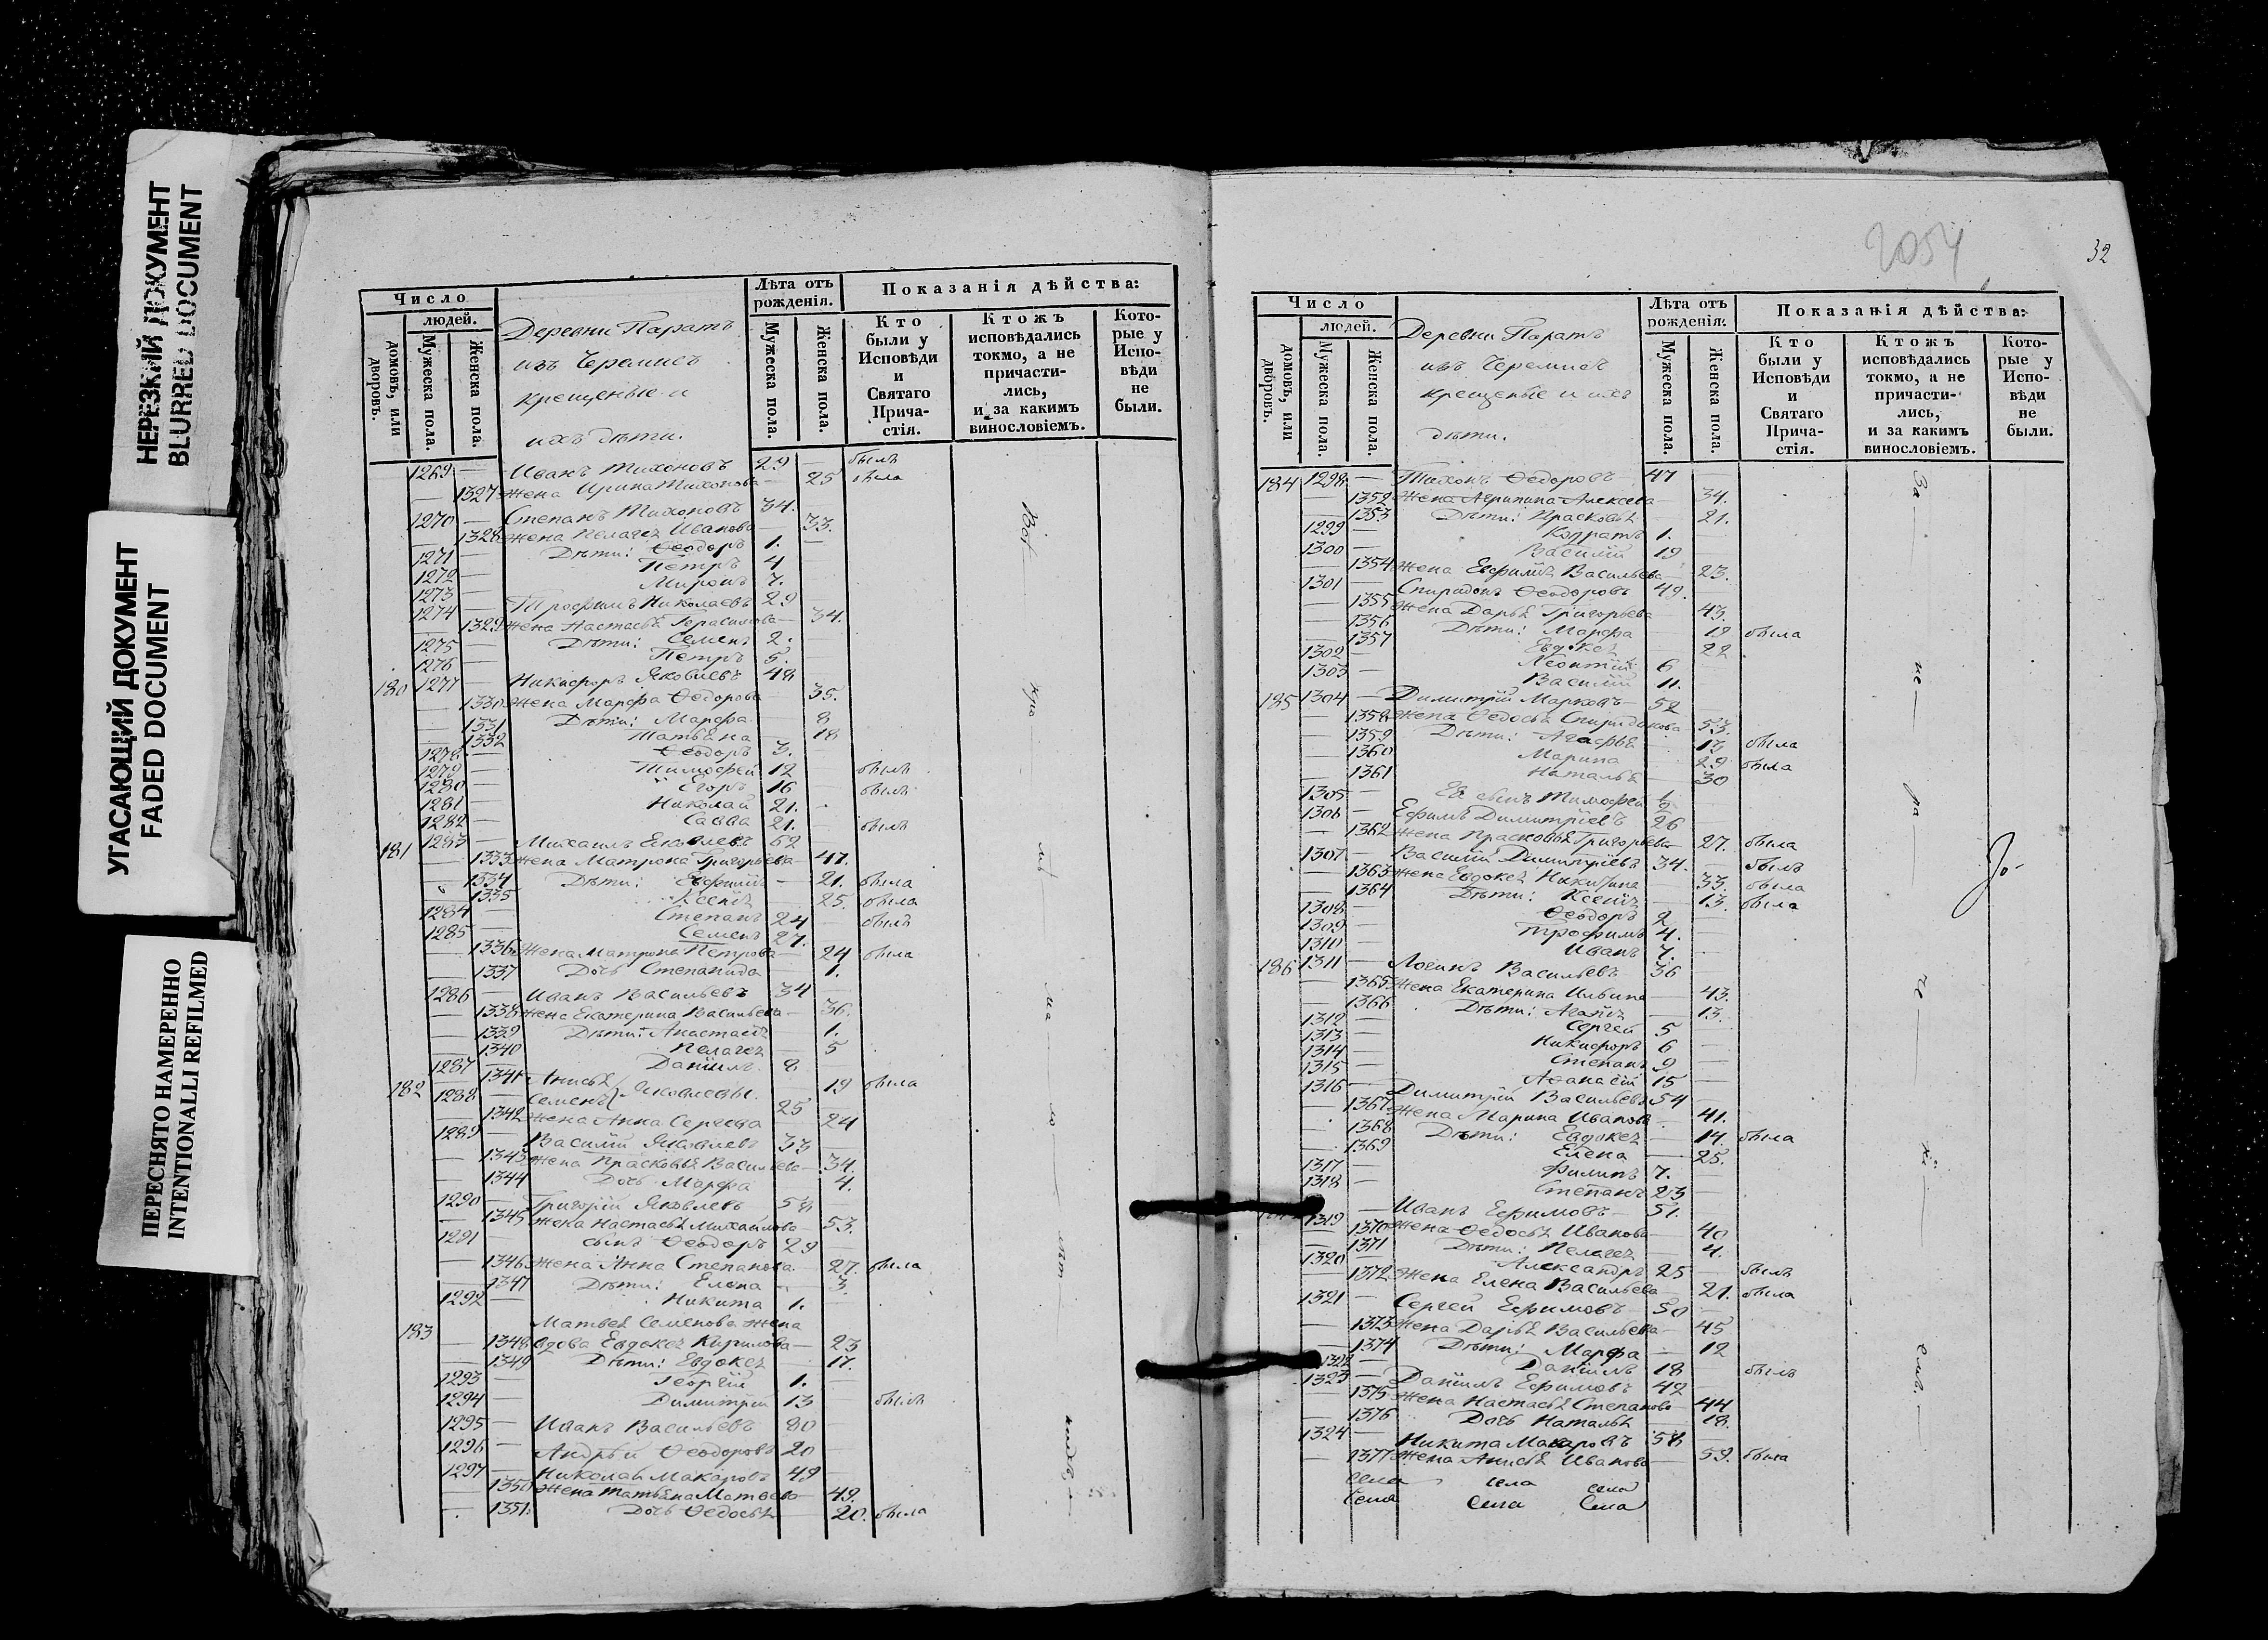 НЕРЕЗКИЙ ДОКУМЕНТ
BLURRED DOCUMENT
УГАСАЮЩИЙ ДОКУМЕНТ
FADED DOCUMENT
ПЕРЕСНЯТО НАМЕРЕННО
INTENTIONALLI REFILMED
Число
людей.
домовъ, или дворовъ.
Мужеска пола.
Женска пола.
Деревни Паратъ
изъ Черемисъ
крещеные и
ихъ дѣти.
Лѣта отъ рожденія.
Мужеска пола.
Женска пола.
Показанія дѣйства:
Кто были у Исповѣди и Святаго Прича-стія.
Ктожъ исповѣдались токмо, а не причасти-лись, и за какимъ винословіемъ.
Кото-рые у Испо-вѣди не были.
1269 — Иванъ Тихоновъ 29 — былъ
— 1327 Жена Ирина Тихонова — 25 была
1270 — Степанъ Тихоновъ 34.
— 1328 Жена Пелагея Иванова — 33.
1271 — Дѣти: Ѳеодоръ 1.
1272 — Петръ 4
1273 — Миронъ 7.
1274 — Трофимъ Николаевъ 29
— 1329 Жена Настасья Герасимова — 34.
1275 — Дѣти: Семенъ 2.
1276 — Петръ 5.
180 1277 — Никифоръ Яковлевъ 48
— 1330 Жена Марфа Ѳедорова — 35.
— 1331 Дѣти: Марфа — 8
— 1332 Татьяна — 18
1278 — Ѳеодоръ 3.
1279 — Тимофей 12 былъ
1280 — Егоръ 16 былъ
1281 — Николай 21.
1282 — Савва 21. былъ
181 1283 — Михаилъ Яковлевъ 62
— 1333 Жена Матрона Григорьева — 47.
1334 Дѣти: Евфимія — 21. была
1335 Ксенія 25. была
1284 — Степанъ 24 былъ
1285 — Семенъ 27.
— 1336 Жена Матрона Петрова — 24 была
— 1337 Дочь Степанида — 1.
1286 — Иванъ Васильевъ 34
— 1338 Жена Екатерина Васильева — 36.
— 1339 Дѣти: Анастасія 1.
— 1340 Пелагея — 5
1287 — Даніилъ 8
182 — 1341 Анисья — 19 была
1288 — Семенъ Яковлевы. 25
— 1342 Жена Анна Сергеева — 24
1289 — Василій Яковлевъ 33
— 1343 Жена Прасковья Васильева — 34.
— 1344 Дочь Марфа 4.
1290 — Григорій Яковлевъ 58
— 1345 Жена Настасья Михайлова — 53.
1291 — сынъ Ѳеодоръ 29
— 1346 Жена Анна Степанова — 27. была
— 1347 Дѣти: Елена — 3.
1292 — Никита 1.
183 Матвея Семенова жена
— 1348 вдова Евдокея Кирилова — 23
— 1349 Дѣти: Евдокея 17.
1293 — Георгій 1.
1294 — Димитрій 13 былъ
1295 — Иванъ Васильевъ 80
1296 — Андрей Ѳеодоровъ 20
1297 — Николай Макаровъ 49
— 1350 Жена Татьяна Матвеева — 49.
1351 Дочь Ѳедосья — 20. была
2054
32
Число
людей.
домовъ, или дворовъ.
Мужеска пола.
Женска пола.
Деревни Паратъ
изъ Черемисъ
крещеные и ихъ
дѣти.
Лѣта отъ рожденія.
Мужеска пола.
Женска пола.
Показанія дѣйства:
Кто были у Исповѣди и Святаго Прича-стія.
Ктожъ исповѣдались токмо, а не причасти-лись, и за какимъ винословіемъ.
Кото-рые у Испо-вѣди не были.
184 1298 — Тихонъ Ѳедоровъ 47 —
— 1352 Жена Агрипина Алексеева — 34.
— 1353 Дѣти: Прасковья — 21.
1299 — Кодратъ 1. —
1300 — Василій 19
— 1354 Жена Евфимія Васильева — 23.
1301 — Спиридонъ Ѳеодоровъ 49.
— 1355 Жена Дарья Григорьева — 43.
— 1356 Дѣти: Марфа — 19 была
1357 Евдокея — 22
1302 — Леонтій 6
1303 — Василій 11.
185 1304 — Димитрій Марковъ 52
— 1358 Жена Ѳедосья Спиридонова 53.
— 1359 Дѣти: Агафья 13 была
— 1360 Марина 29 была
— 1361 Наталья — 30
1305 — Ея сынъ Тимофей
1306 — Ефимъ Димитріевъ 26
— 1362 Жена Прасковья Григорьева — 27. была
1307 — Василій Димитріевъ 34. — былъ
— 1363 Жена Евдокея Никитина — 33. была
— 1364 Дѣти: Ксенія — 13. была
1308 — Ѳеодоръ 2
1309 — Трофимъ 4.
1310 — Иванъ 7.
186 1311 — Логинъ Васильевъ 36
— 1365 Жена Екатерина Ильина — 43.
— 1366 Дѣти: Агафія — 13.
1312 — Сергей 5
1313 — Никифоръ 6
1314 — Степанъ 9
1315 — Аѳанасій 15
1316 — Димитрій Васильевъ 54
— 1367 Жена Марина Иванова — 41.
— 1368 Дѣти: Евдокея — 14. была
1369 Елена — 25.
1317 — Филипъ 7.
1318 — Степанъ 23
1319 — Иванъ Ефимовъ 51.
— 1370 Жена Ѳедосья Иванова — 40
— 1371 Дѣти: Пелагея — 4.
1320 — Александръ 25 — былъ
— 1372 Жена Елена Васильева — 21. была
1321 — Сергей Ефимовъ 50
— 1373 Жена Дарья Васильева — 45
— 1374 Дѣти: Марфа — 12
1322 — Даніилъ 18 былъ
1323 — Даніилъ Ефимовъ 42
— 1375 Жена Настасья Степанова — 44
— 1376 Дочь Наталья 18.
1324 — Никита Макаровъ 58
— 1377 Жена Анисья Иванова — 59. была
села села села
Села Села Села